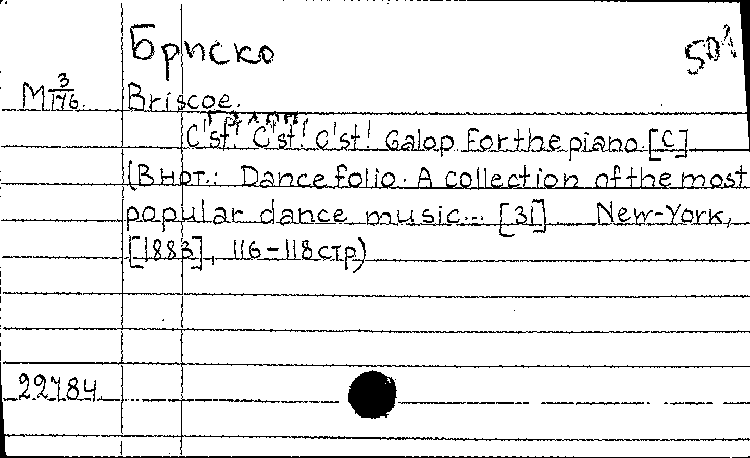 Бриско
501
M 3/176.
Briscoe.
C'st! C'st! C'st! Galop for the piano. [C]
(В нот.: Dance folio. A collection of the most
popular dance music... [31] New-York,
[1883], 116-118 стр)
22784